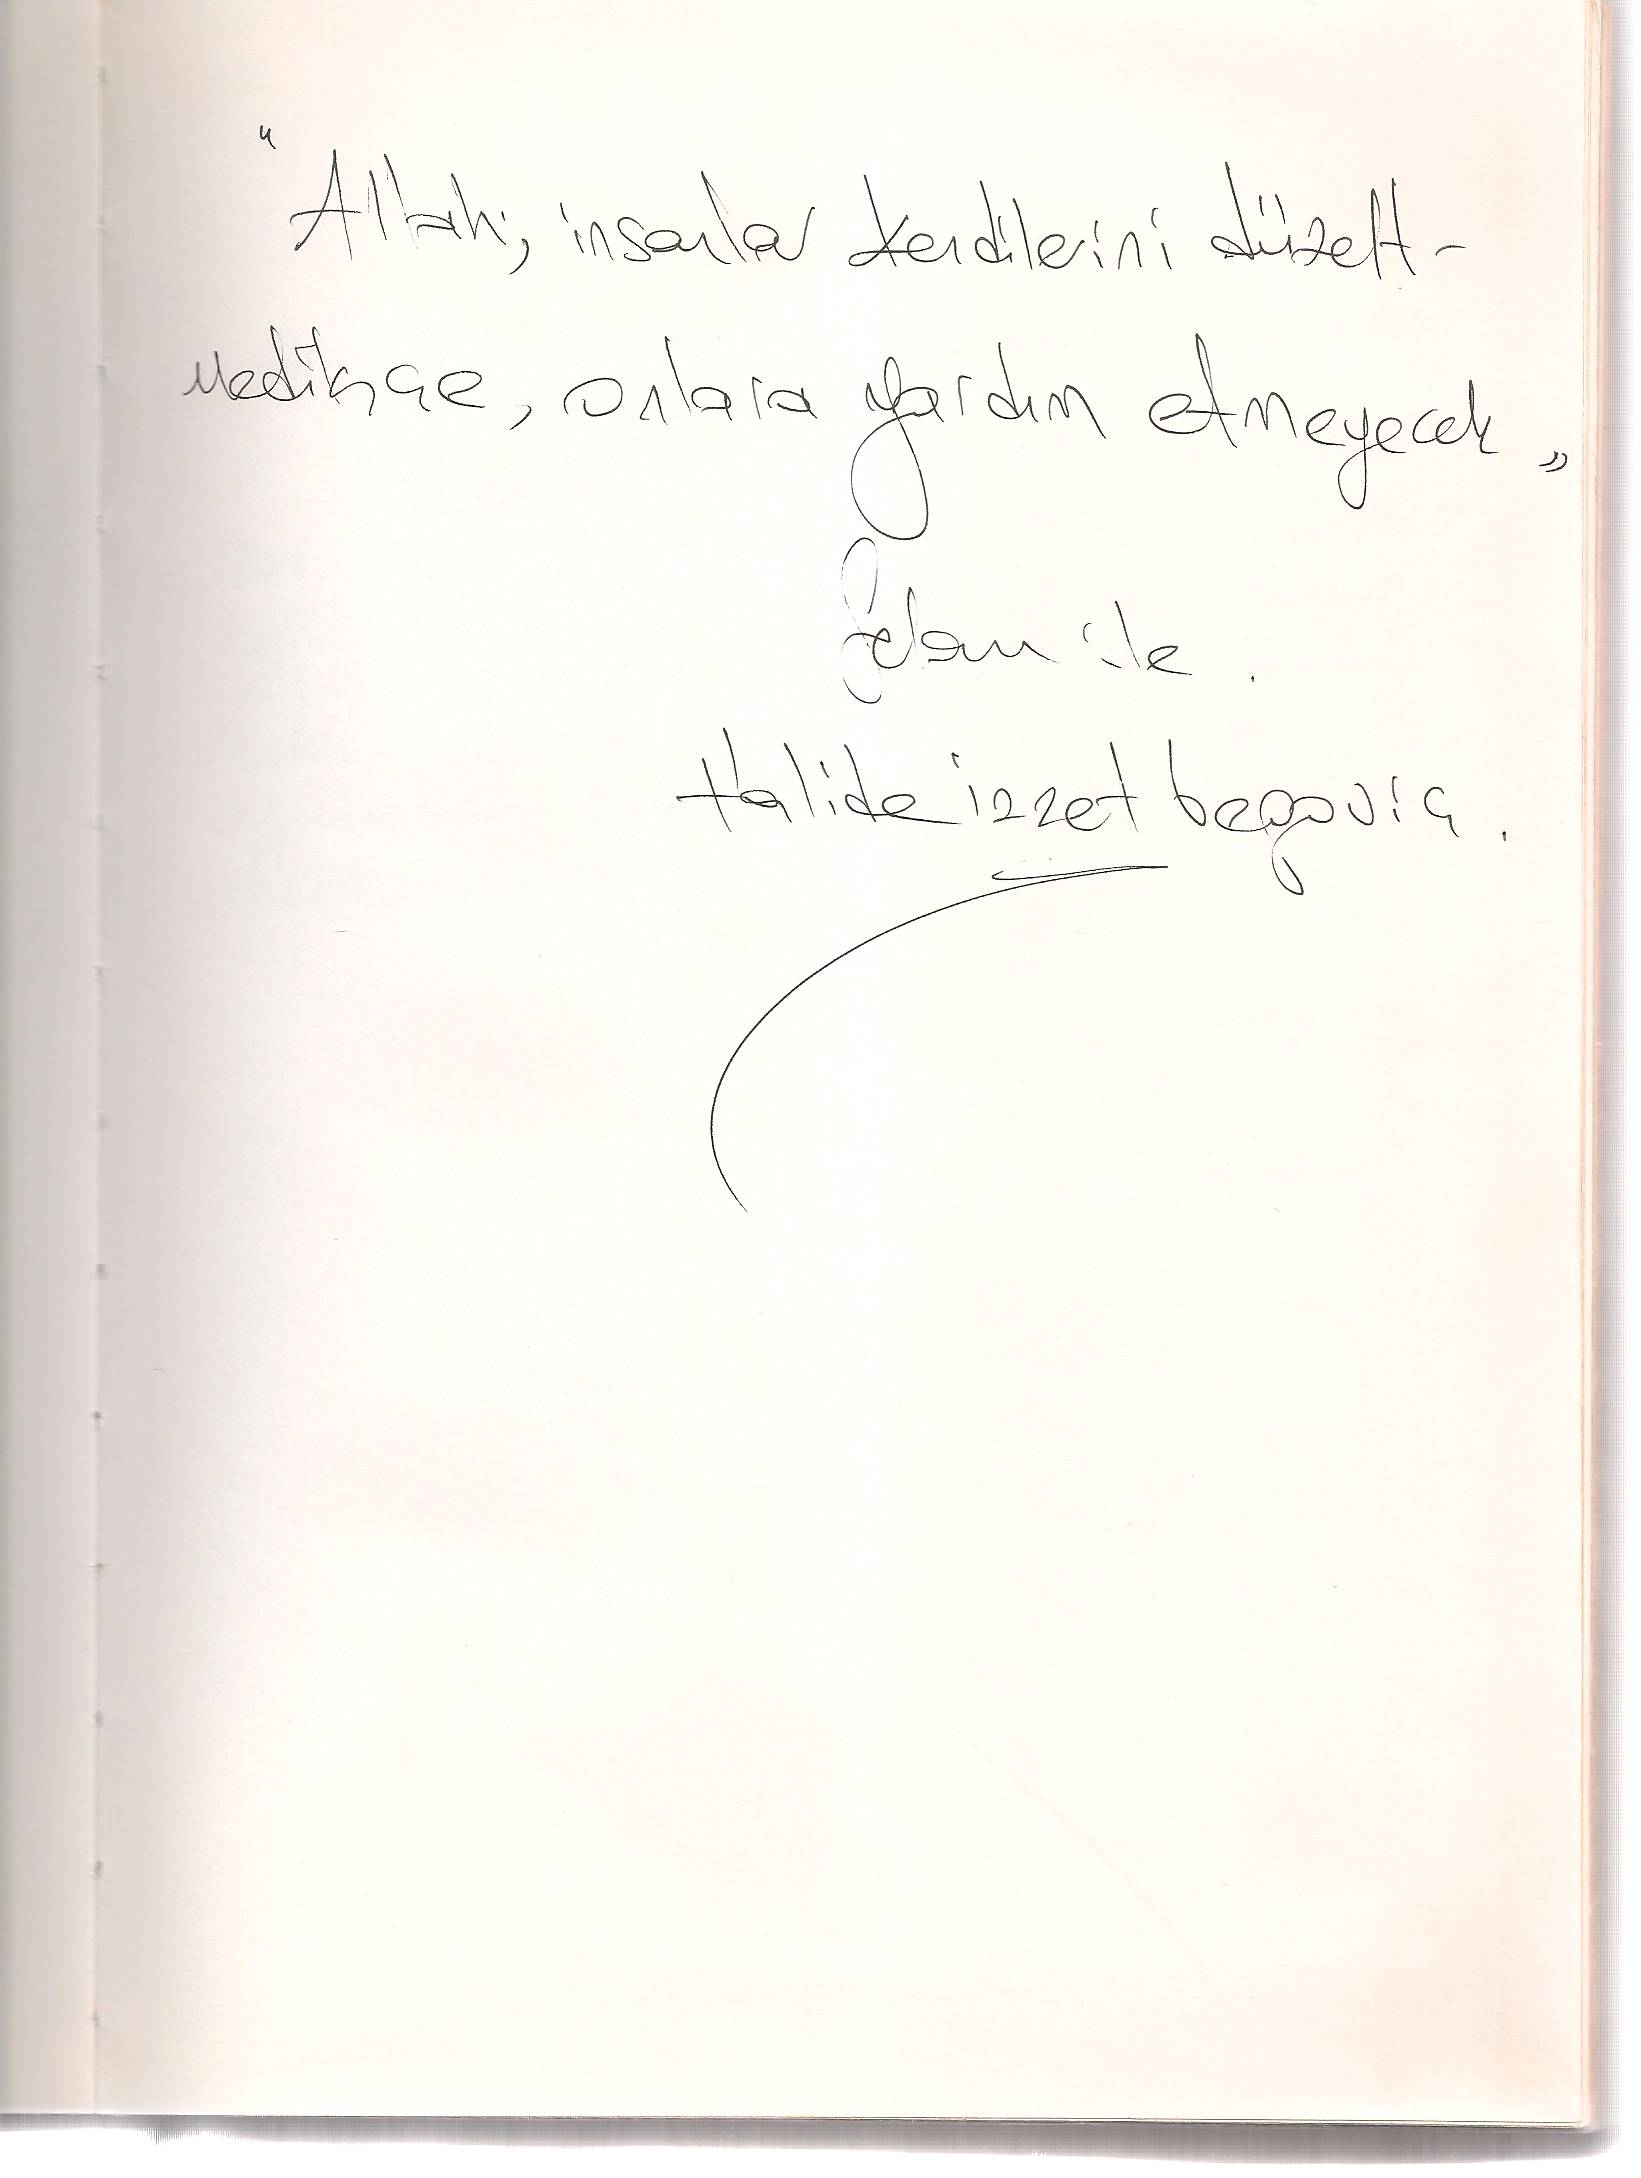 "Allah, insanlar kendilerini düzelt-
medikçe, onlara yardım etmeyecek"
Selam ile.
Halide izzet begoviç.